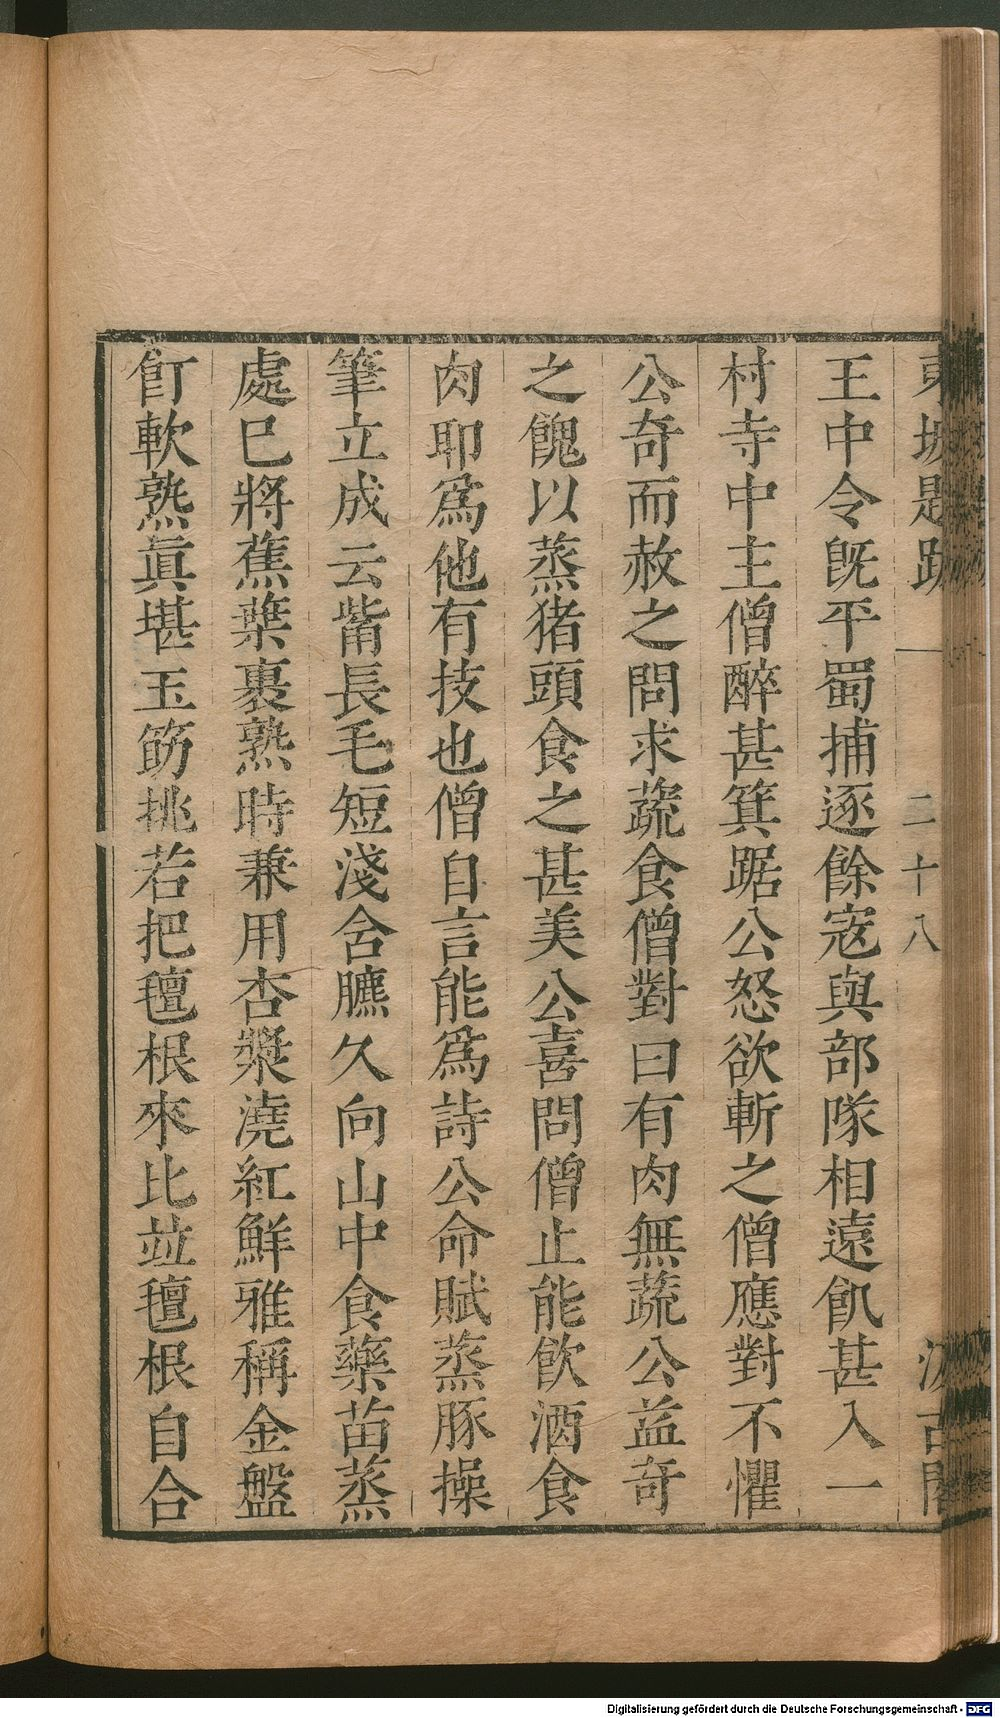 東坡題跋 一 二十八 汲古閣
王中令旣平蜀捕逐餘寇與部隊相遠飢甚入一
村寺中主僧醉甚箕踞公怒欲斬之僧應對不懼
公奇而赦之問求蔬食僧對曰有肉無蔬公益奇
之餽以蒸猪頭食之甚美公喜問僧止能飲酒食
肉耶爲他有技也僧自言能爲詩公命賦蒸豚操
筆立成云觜長毛短淺含臕久向山中食藥苗蒸
處巳將蕉葉裹熟時兼用杏漿澆紅鮮雅稱金盤
飣軟熟眞堪玉筯挑若把氊根來比並氊根自合
Digitalisierung gefördert durch die Deutsche Forschungsgemeinschaft - DFG